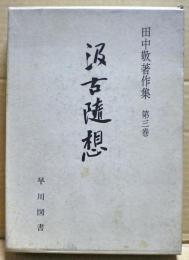 田中敬著作集 第三巻
汲古随想
早川図書